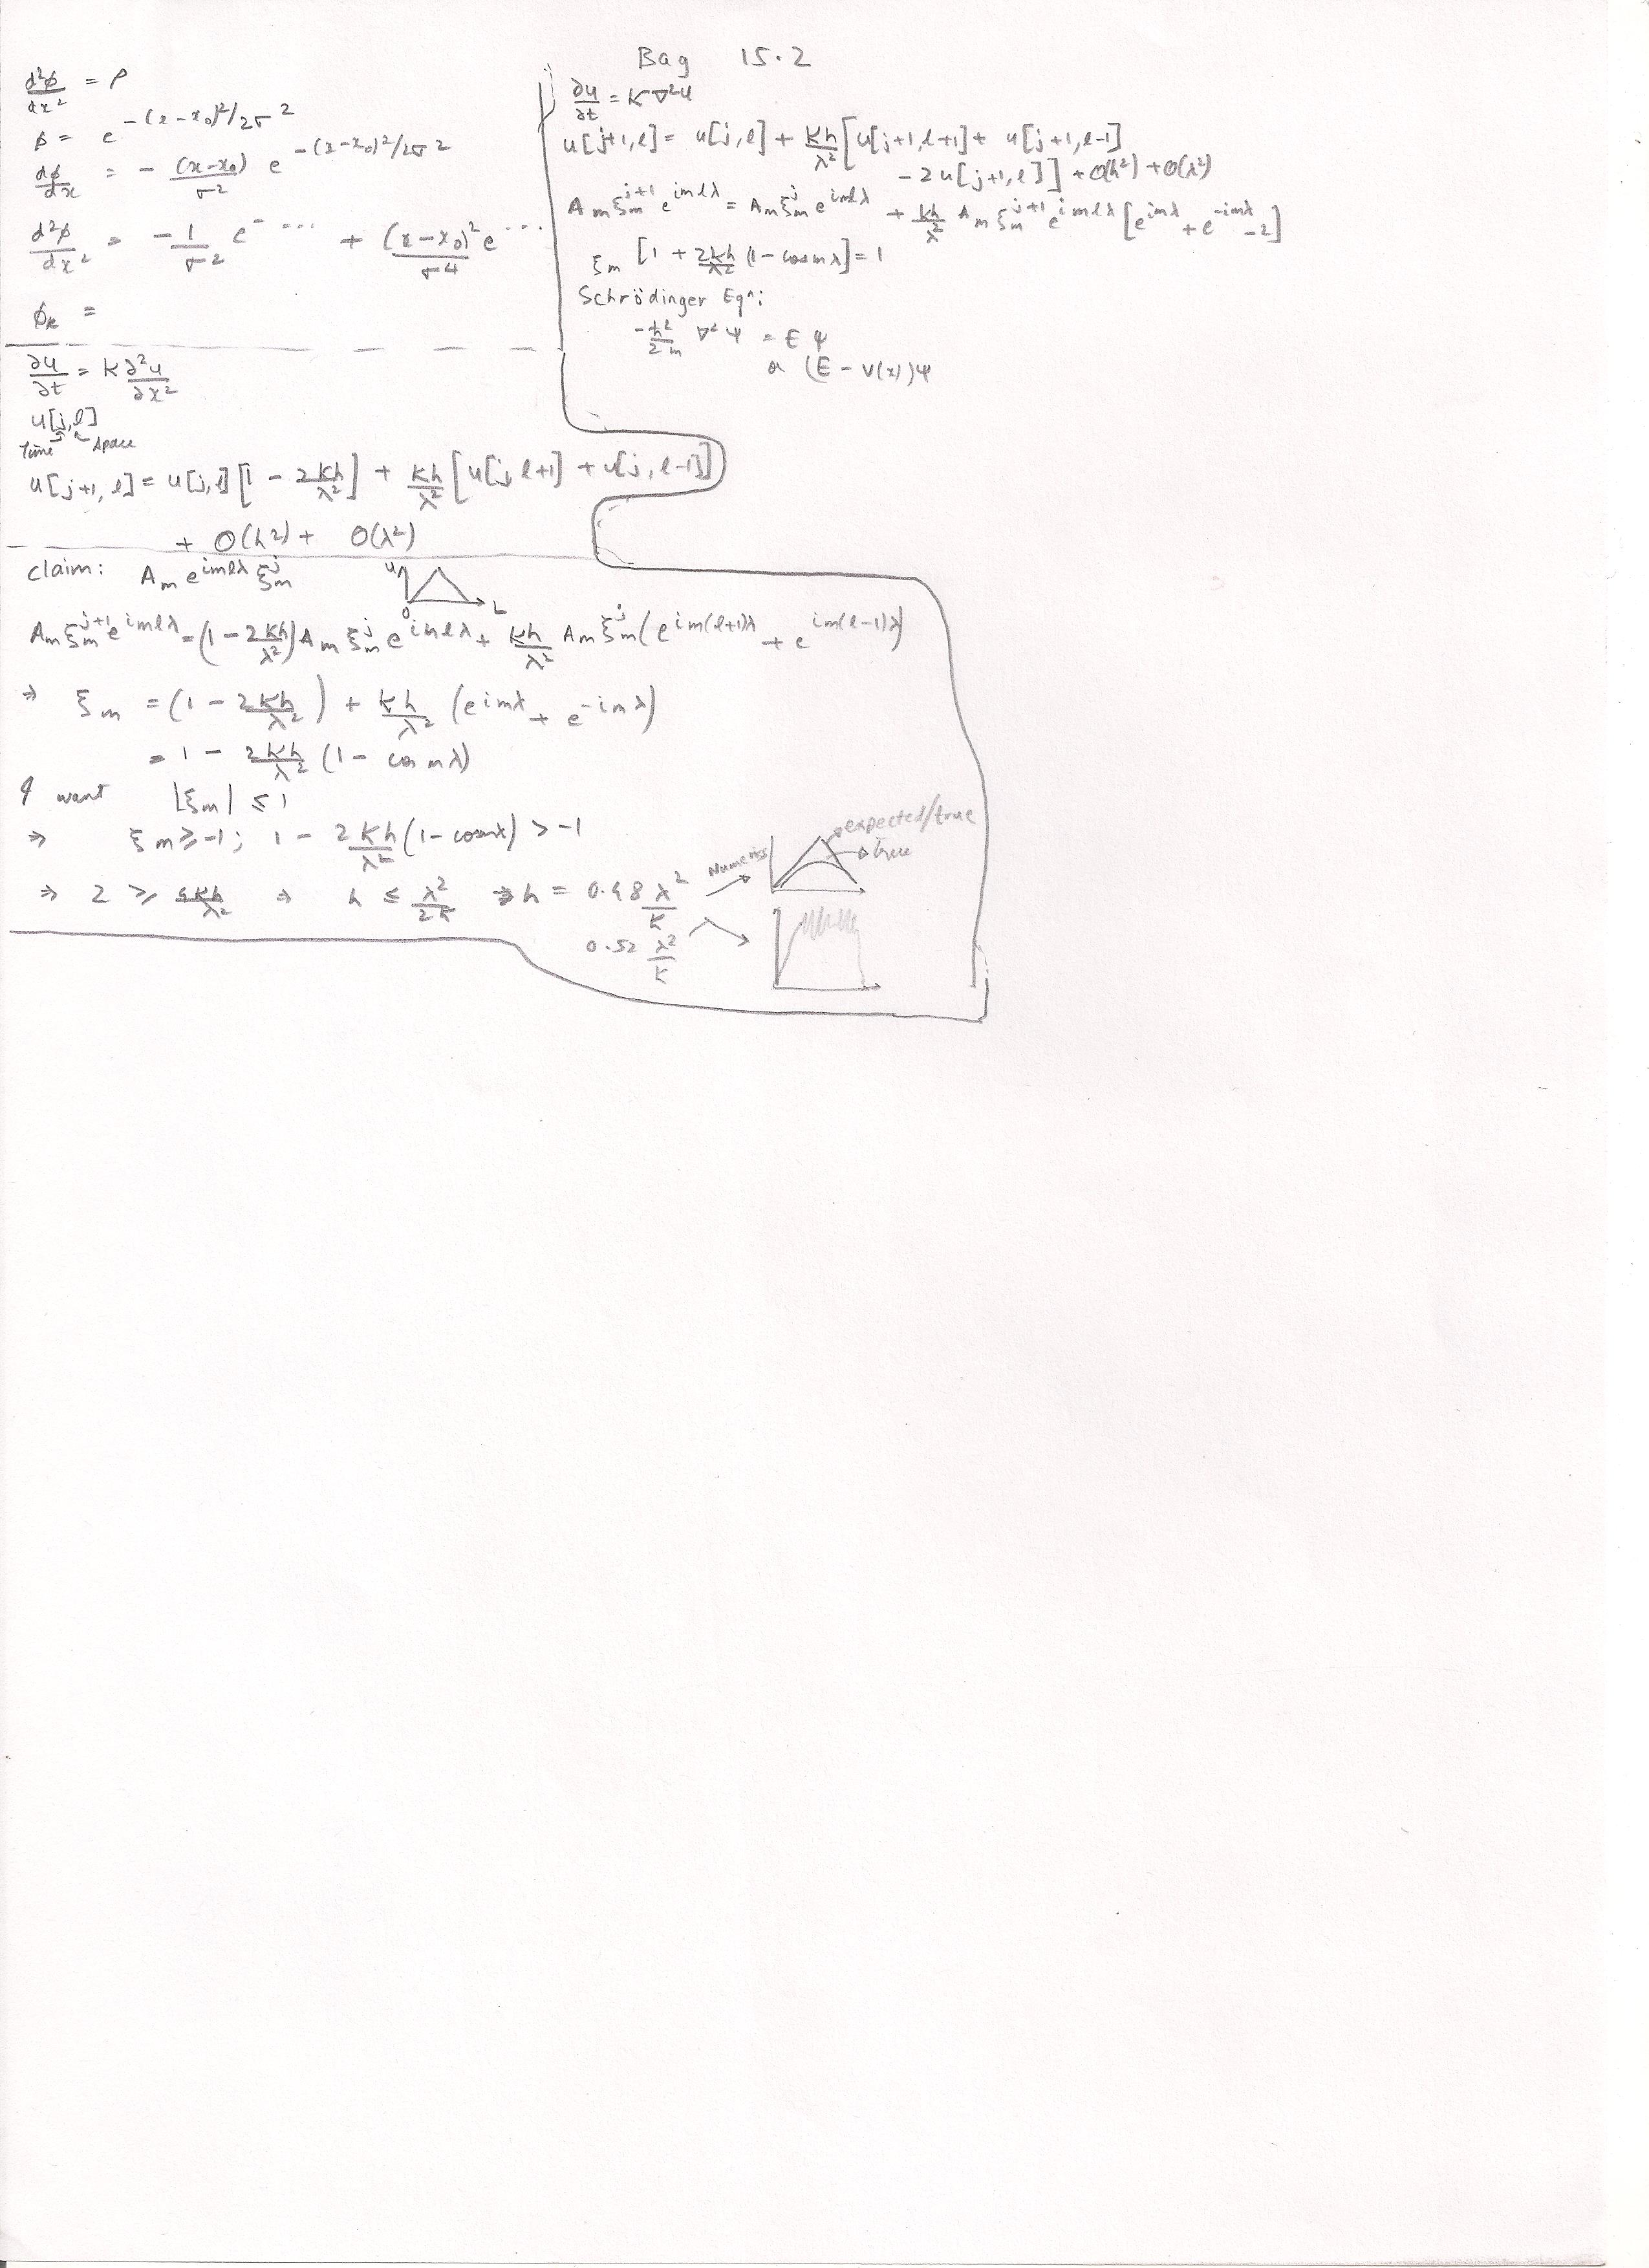 Bag 15.2
d²ϕ/dx² = ρ
ϕ = e^{-(x-x₀)²/2σ²}
dϕ/dx = - (x-x₀)/σ² e^{-(x-x₀)²/2σ²}
d²ϕ/dx² = -1/σ² e^{- ...} + (x-x₀)²/σ⁴ e^{...}
ϕₖ =
∂u/∂t = K ∂²u/∂x²
u[j,l]
Time Space
u[j+1, l] = u[j,l][1 - 2Kh/λ²] + Kh/λ² [u[j,l+1] + u[j,l-1]]
+ O(h²) + O(λ²)
claim: Aₘ e^{imlλ} ξₘ^j
u
0 L
Aₘ ξₘ^{j+1} e^{imlλ} = (1 - 2Kh/λ²) Aₘ ξₘ^j e^{imlλ} + Kh/λ² Aₘ ξₘ^j (e^{im(l+1)λ} + e^{im(l-1)λ})
⇒ ξₘ = (1 - 2Kh/λ²) + Kh/λ² (e^{imλ} + e^{-imλ})
= 1 - 2Kh/λ² (1 - cos mλ)
I want |ξₘ| ≤ 1
⇒ ξₘ ≥ -1; 1 - 2Kh/λ² (1 - cos mλ) > -1
⇒ 2 ≥ 4Kh/λ² ⇒ h ≤ λ²/2K ⇒ h = 0.48 λ²/K
0.52 λ²/K
expected/true
true
∂u/∂t = K ∇²u
u[j+1,l] = u[j,l] + Kh/λ² [u[j+1,l+1] + u[j+1,l-1]
- 2u[j+1,l]] + O(h²) + O(λ²)
Aₘ ξₘ^{j+1} e^{imlλ} = Aₘ ξₘ^j e^{imlλ} + Kh/λ² Aₘ ξₘ^{j+1} e^{imlλ} [e^{imλ} + e^{-imλ} - 2]
ξₘ [1 + 2Kh/λ² (1 - cos mλ)] = 1
Schrödinger Eqⁿ:
-ħ²/2m ∇²Ψ = E Ψ
or (E - V(x))Ψ